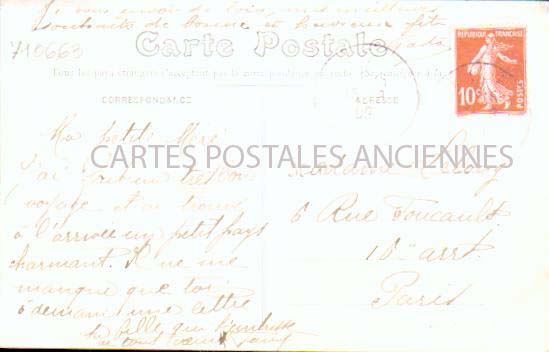 Je vous envoie de loin mes meilleurs
souhaits de bonne et heureuse fête
710663
Carte Postale
Tous les pays étrangers n'acceptent pas la correspondance au recto.
RÉPUBLIQUE FRANÇAISE
10c
POSTES
CORRESPONDANCE
ADRESSE
09
Ma petite Mère
J'ai fait un très bon
voyage et ai trouvé
à l'arrivée un petit pays
charmant. Il ne me
manque que toi
à demain une lettre
ta fille qui t'embrasse
de tout cœur
CARTES POSTALES ANCIENNES
Madame
6 Rue Foucault
16e arrt.
Paris